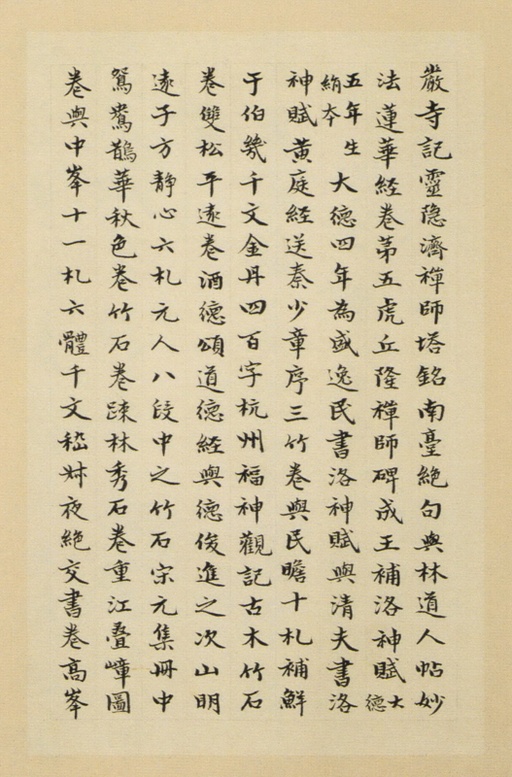 嚴寺記靈隐濟禪師塔銘南臺絶句與林道人帖妙
法蓮華經卷苐五虎丘隆禪師碑成王補洛神賦大德
五年生絹本大德四年為盛逸民書洛神賦與清夫書洛
神賦黃庭經送秦少章序三竹卷與民瞻十札補鮮
于伯幾千文金丹四百字杭州福神觀記古木竹石
卷雙松平遠卷酒德頌道德經與德俊進之次山明
遠子方靜心六札元人八段中之竹石宋元集冊中
鴛鴦鶺華秋色卷竹石卷疎林秀石卷重江疊嶂圖
卷與中峯十一札六體千文嵇叔夜絶交書卷高峯